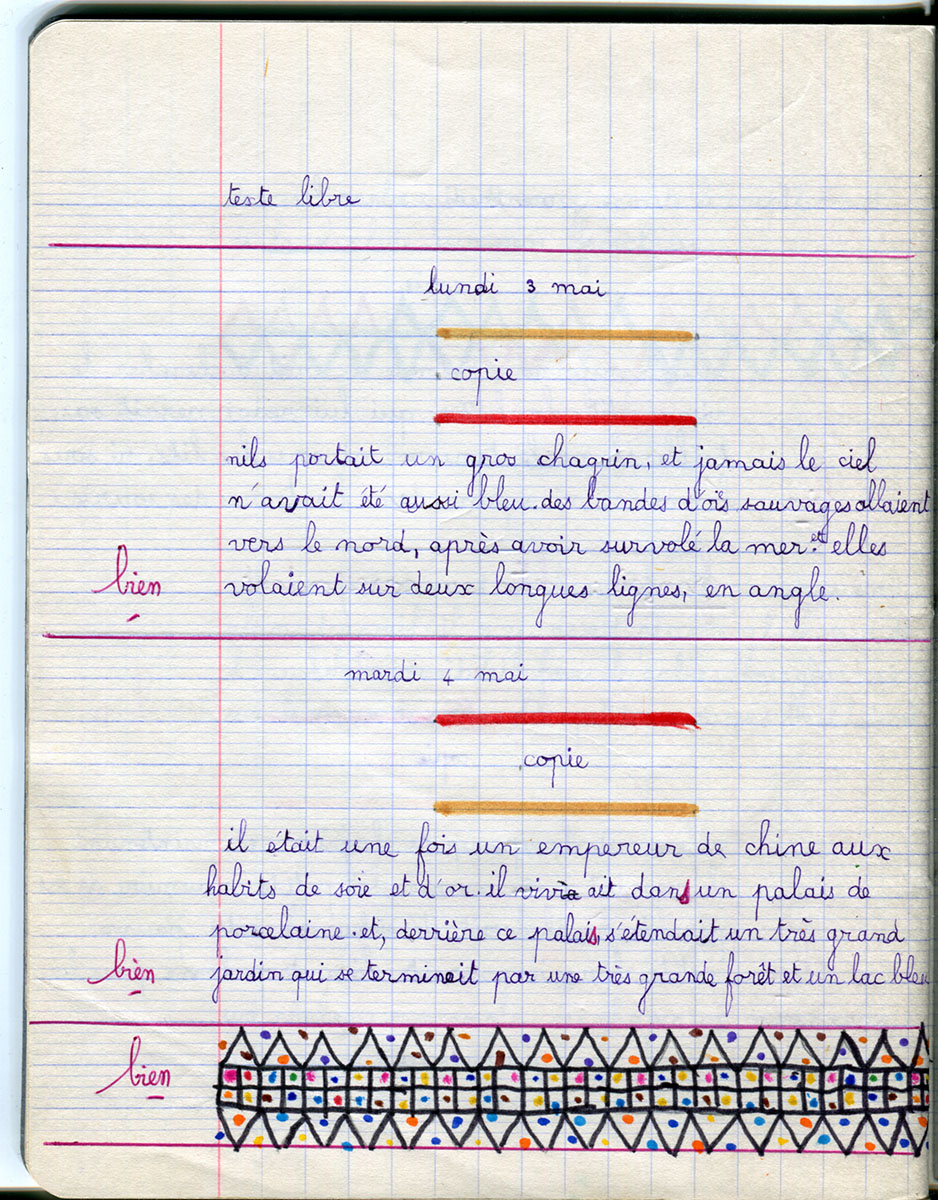 texte libre
lundi 3 mai
copie
nils portait un gros chagrin, et jamais le ciel
n'avait été aussi bleu. des bandes d'oies sauvages allaient
vers le nord, après avoir survolé la mer. et elles
bien
volaient sur deux longues lignes, en angle.
mardi 4 mai
copie
il était une fois un empereur de chine aux
habits de soie et d'or. il vivait dans un palais de
porcelaine. et, derrière ce palais, s'étendait un très grand
bien
jardin qui se terminait par une très grande forêt et un lac bleu
bien